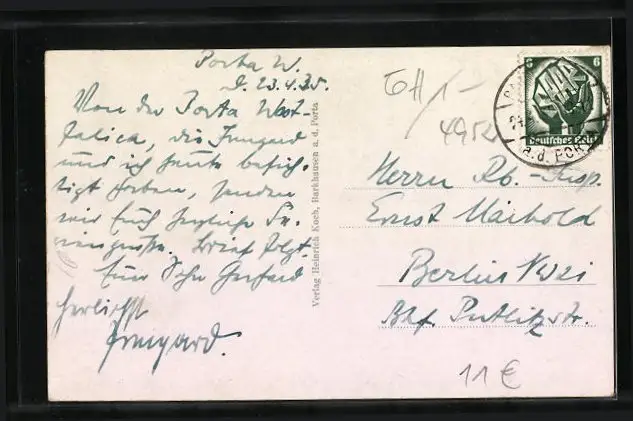 Porta W.
d. 23.4.35.
Von der Porta West-
falica, die Irmgard
und ich heute besich-
tigt haben, senden
wir Euch herzliche Fe-
riengrüße. Brief folgt.
Euer Sohn Gerhard
Herzlichst
Irmgard.
Verlag Heinrich Koch, Barkhausen a. d. Porta
GH/1-
4952
6 6
Deutsches Reich
a.d. PORTA
Herrn Rb.-Insp.
Ernst Maibold
Berlin NW21
Bhf. Putlitzstr.
11 €